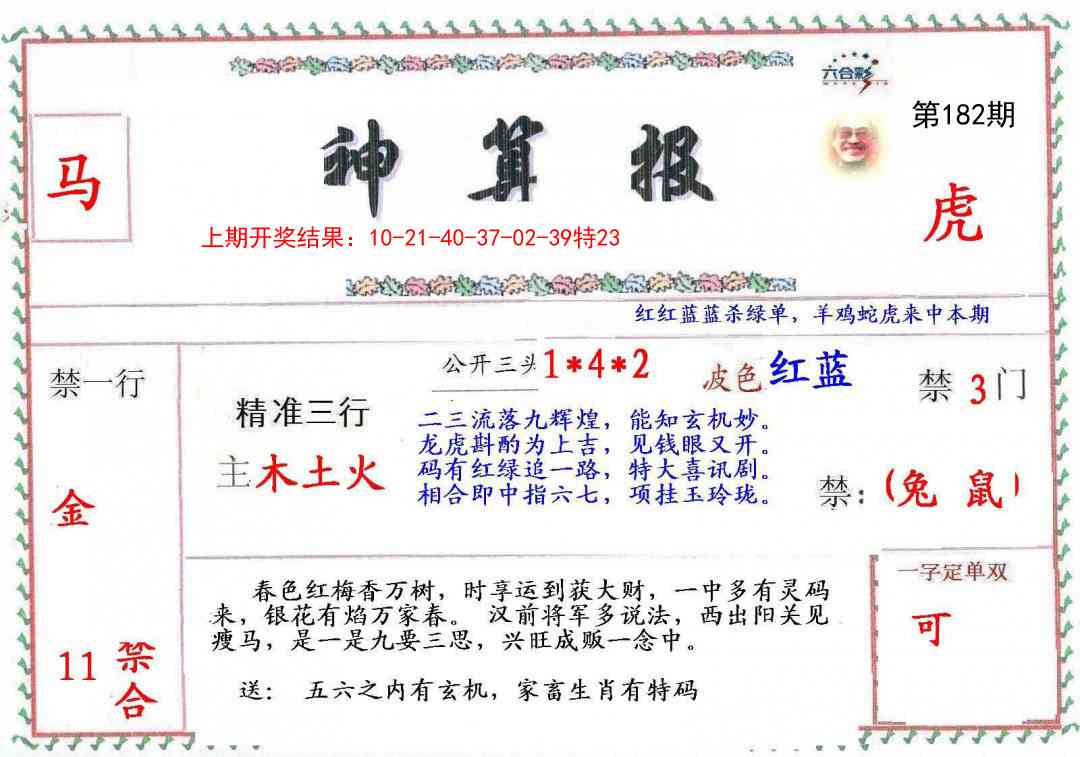 六合彩
第182期
马
神算报
虎
上期开奖结果：10-21-40-37-02-39特23
红红蓝蓝杀绿单，羊鸡蛇虎来中本期
禁一行
金
11 禁合
精准三行
主木土火
公开三头1*4*2
波色红蓝
二三流落九辉煌，能知玄机妙。
龙虎斟酌为上吉，见钱眼又开。
码有红绿追一路，特大喜讯剧。
相合即中指六七，项挂玉玲珑。
禁3门
禁：(兔 鼠)
春色红梅香万树，时享运到获大财，一中多有灵码
来，银花有焰万家春。 汉前将军多说法，西出阳关见
瘦马，是一是九要三思，兴旺成贩一念中。
送： 五六之内有玄机，家畜生肖有特码
一字定单双
可